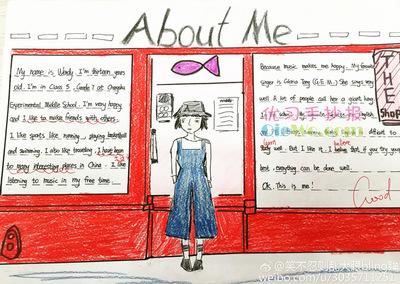 About Me
My name is Wendy. I'm thirteen years
old. I'm in Class 5, Grade 7 at Changsha
Experimental Middle School. I'm very happy
and I like to make friends with others.
I like sports like running, playing basketball
and swimming. I also like traveling. I have been
to many interesting places in China. I like
listening to music in my free time.
Because music makes me happy. My favourite
singer is Gloria Tang (G.E.M.). She sings very
well. A lot of people call her a giant lung
优习手抄报
different to
study well. But I like it. I believe that, if you try your
best, everything can be done well.
Ok. This is me!
Good
THE
Shop
@笑不忍
weibo.com/u/3035711251